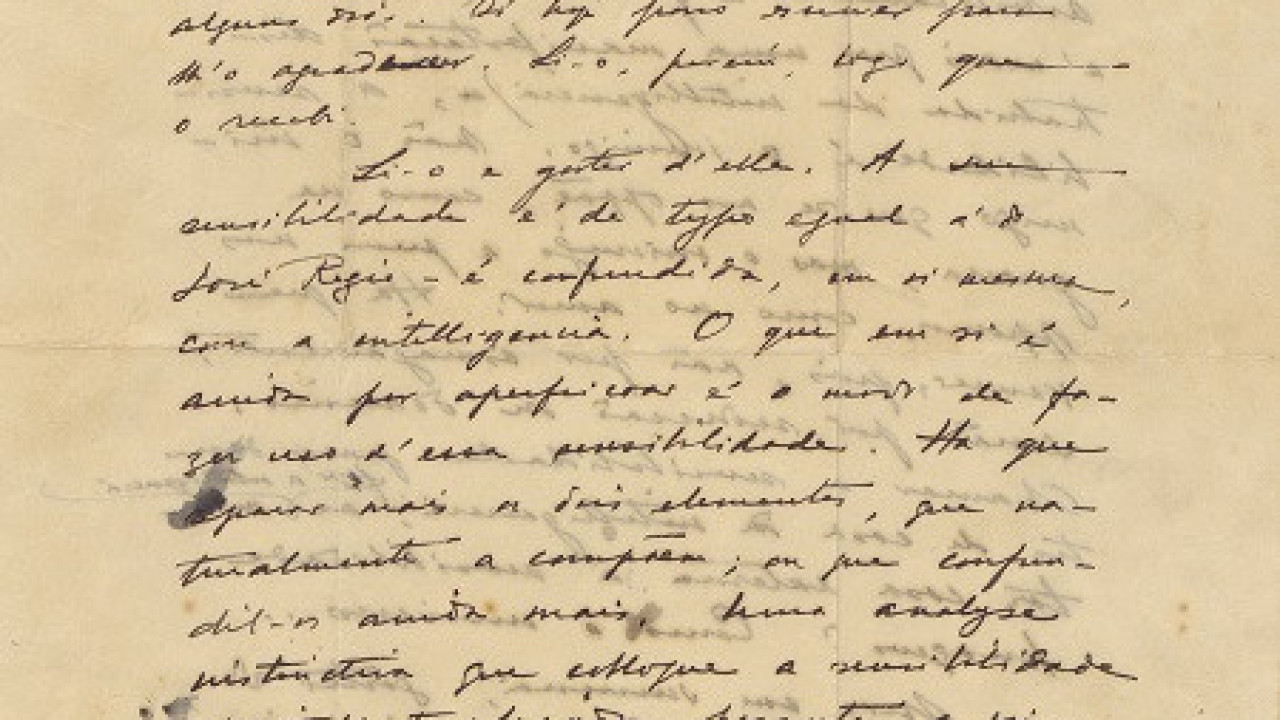 alguns dias. Só hoje posso escrever para
lh'o agradecer. Li-o, porém, logo que
o recebi.
Li-o e gostei d'elle. A sua
sensibilidade é de typo egual á do
José Regio - é confundida, em si mesma,
com a intelligencia. O que em si é
ainda por aperfeiçoar é o modo de fa-
zer uso d'essa sensibilidade. Ha que
separar mais os dois elementos, que na-
turalmente a compõem; ou que confun-
dil-os ainda mais. Uma analyse
instinctiva que colloque a sensibilidade